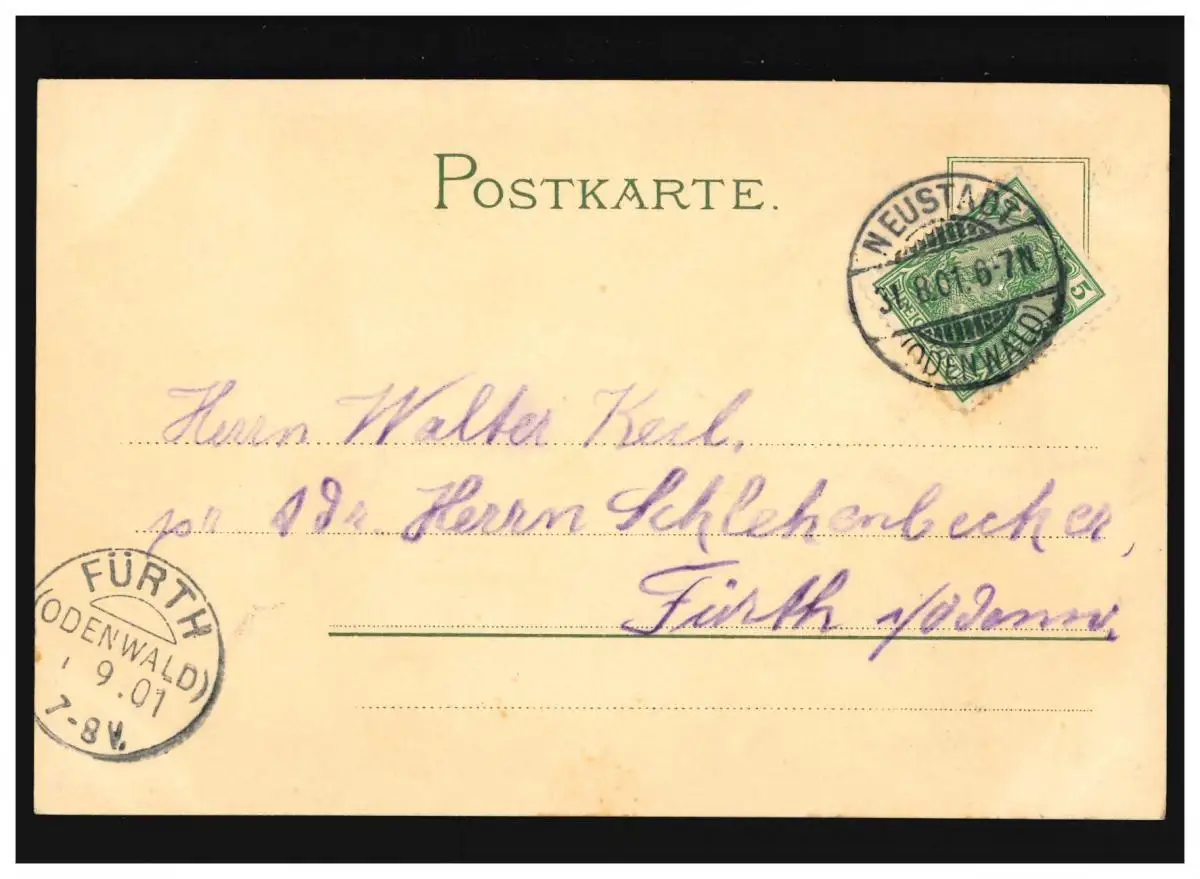 POSTKARTE.
NEUSTADT
31. 8.01. 6-7N.
(ODENWALD)
5
Herrn Walter Keil.
pr Adr. Herrn Schlehenbecker,
Fürth i/Odenw.
FÜRTH
(ODENWALD)
9.01
7-8 V.